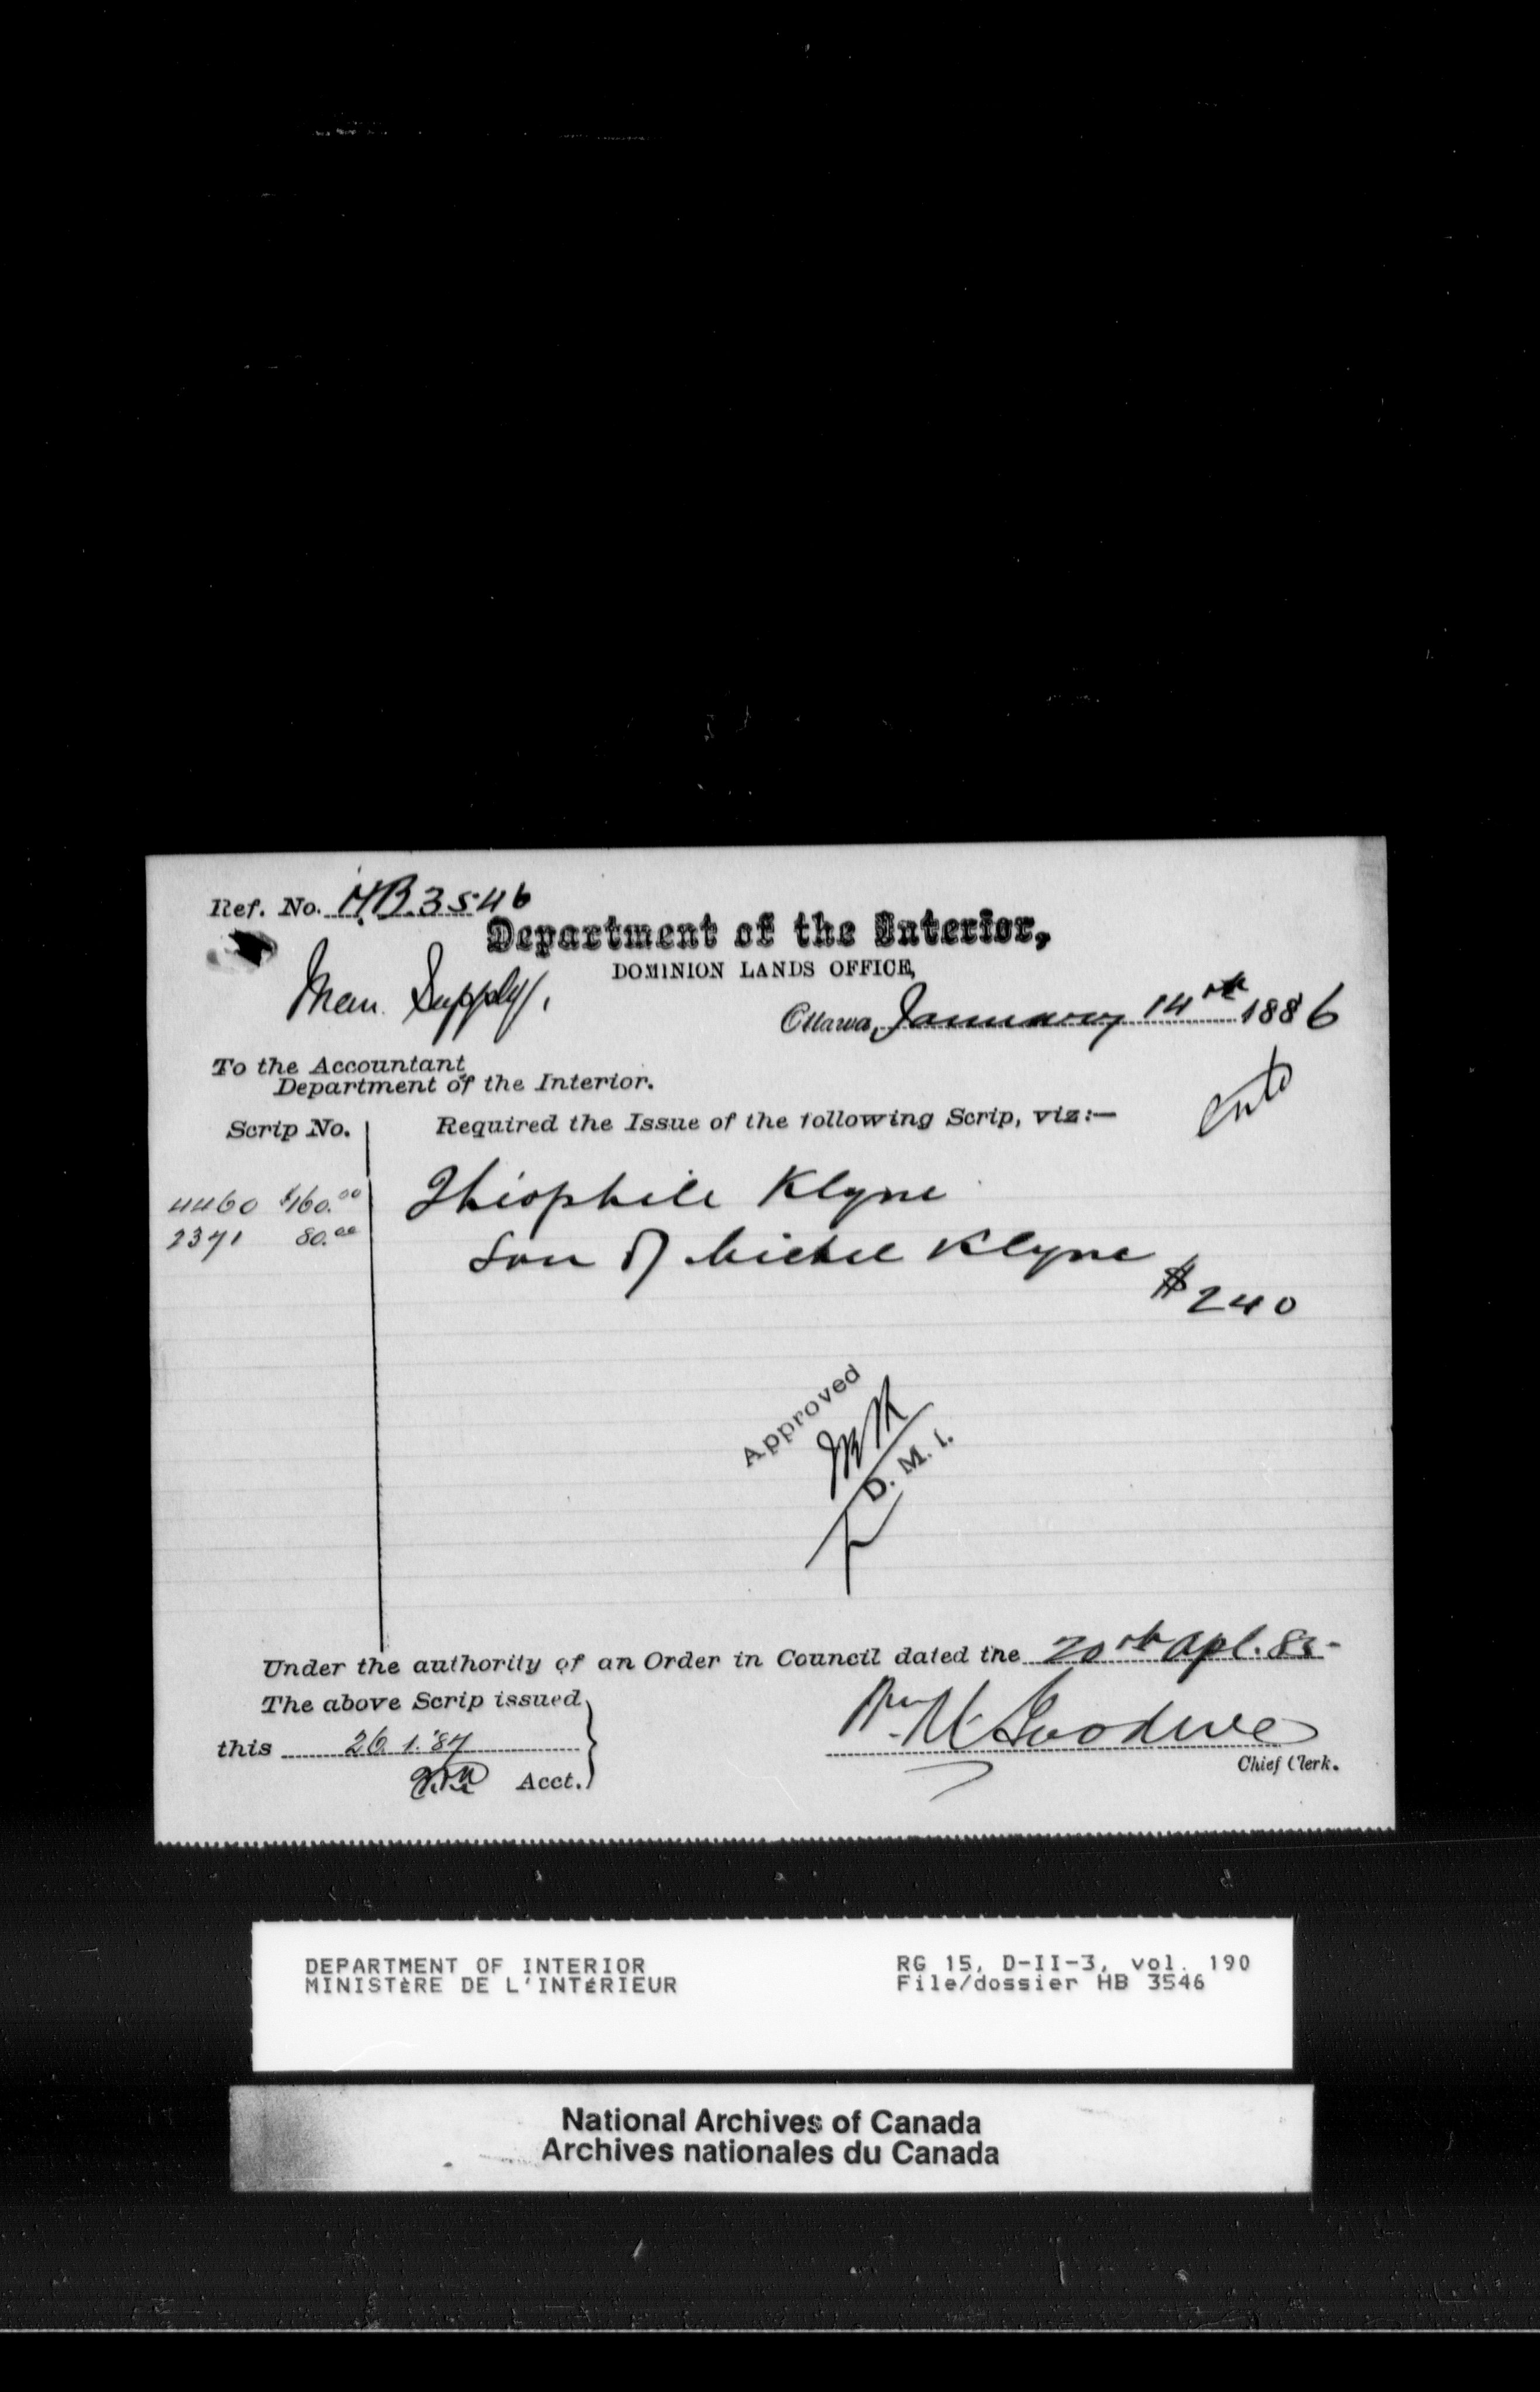 Ref. No. HB 3546
Department of the Interior,
DOMINION LANDS OFFICE,
Man. Supply.
Ottawa, January 14th 1886
To the Accountant
Department of the Interior.
Scrip No.
Required the Issue of the following Scrip, viz:—
4460 $160.00
Thiophile Klyne
2371 80.00
Son of Michel Klyne
$240
Approved
D. M. I.
Under the authority of an Order in Council dated the 20th Apl. 85-
The above Scrip issued
this 26.1.'87
Acct.
Chief Clerk.
DEPARTMENT OF INTERIOR
MINISTÈRE DE L'INTÉRIEUR
RG 15, D-II-3, vol. 190
File/dossier HB 3546
National Archives of Canada
Archives nationales du Canada